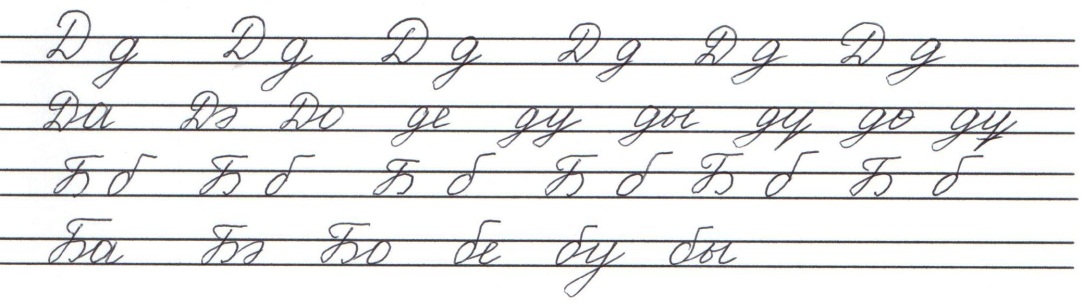 Д д Д д Д д Д д Д д Д д
Да Дэ До де ду ды ду до ду
Б б Б б Б б Б б Б б Б б
Ба Бэ Бо бе бу бы